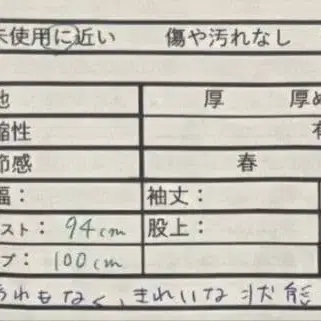 未使用に近い 傷や汚れなし
地 厚 厚め
縮性 有
節感 春
幅: 袖丈:
スト: 94cm 股上:
プ: 100cm
られもなく、きれいな状態